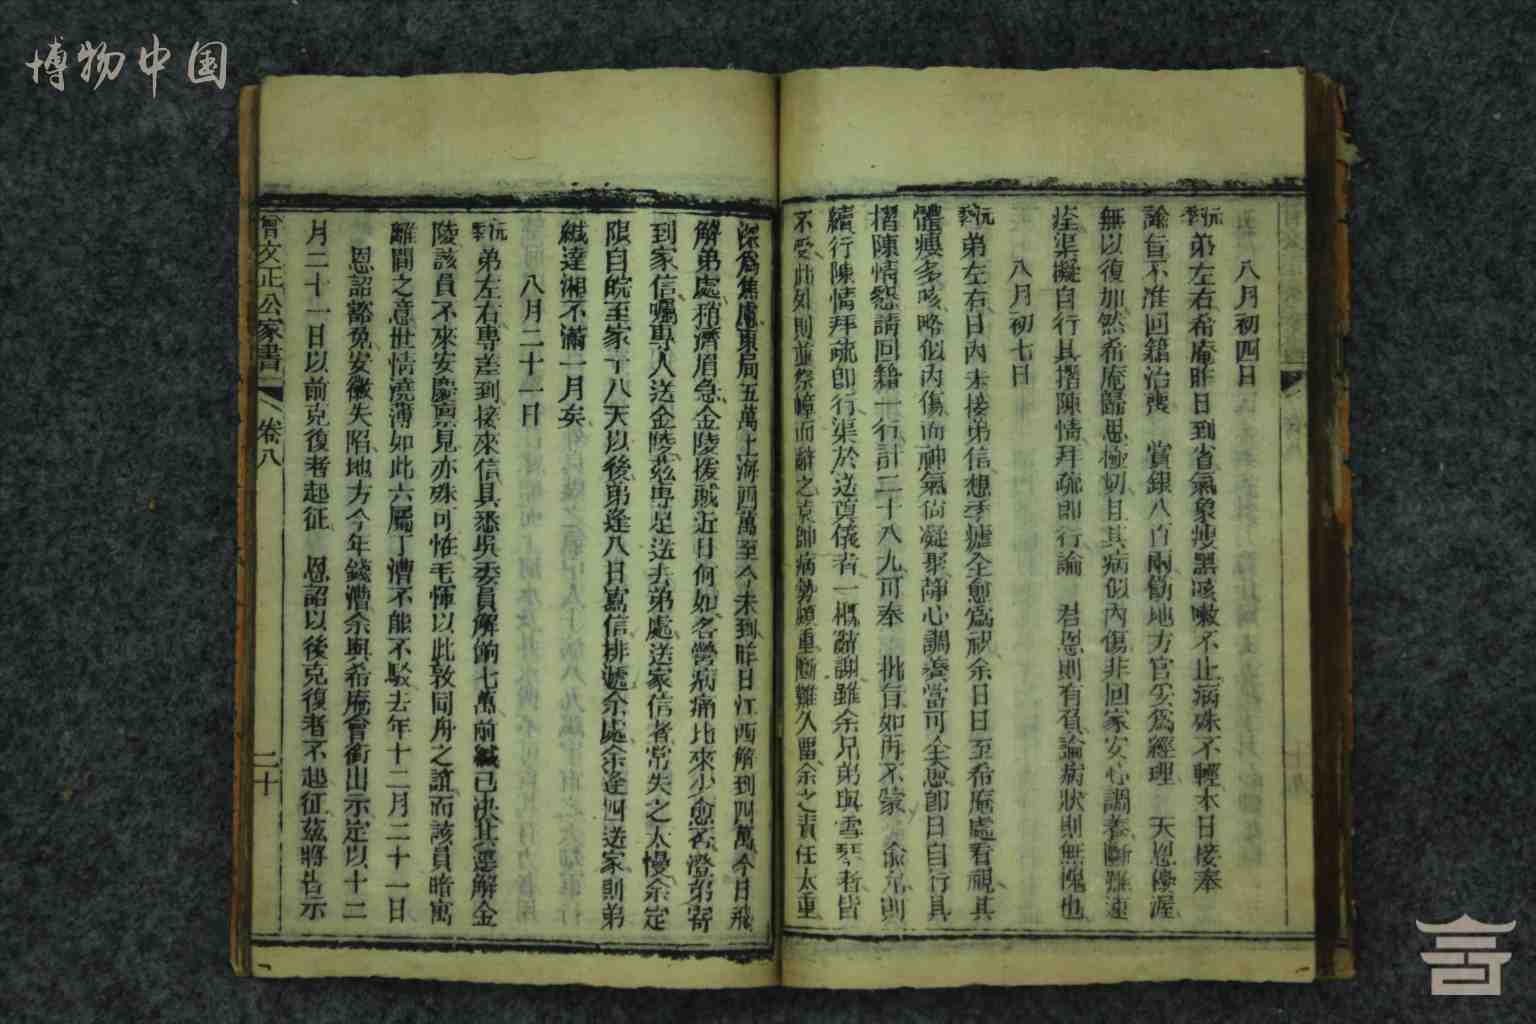 博物中国
八月初四日
沅季弟左右希庵昨日到省氣象瘦黑咳嗽不止病殊不輕本日接奉
諭旨不准回籍治喪　賞銀八百兩勸地方官妥為經理　天恩優渥
無以復加然希庵歸思極切且其病似內傷非回家安心調養斷難速
痊渠擬自行具摺陳情拜疏即行論　君恩則有負論病狀則無愧也
八月初七日
沅季弟左右日內未接弟信想季瘧全愈為祝余日日至希庵處看視其
體瘦多咳略似內傷而神氣尚凝聚靜心調養當可全愈即日自行具
摺陳情懇請回籍一行計二十八九可奉　批旨如再不蒙　俞允則
續行陳情拜疏即行渠於送奠儀者一概辭謝雖余兄弟與雪琴者皆
不受此外則並祭幛而辭之袁帥病勢頗重斷難久留余之責任太重
深為焦慮東局五萬上海四萬至今未到昨日江西解到四萬今日飛
解弟處稍濟眉急金陵援賊近日何如各營病痛比來少愈否澄弟寄
到家信囑專人送金陵茲專足送去弟處送家信者常失之太慢余定
限自皖至家十八天以後弟逢八日寫信排遞余處余逢四送家則弟
緘達湘不滿一月矣
八月二十一日
沅季弟左右專差到接來信具悉吳委員解餉七萬前緘已決其逕解金
陵該員不來安慶稟見亦殊可怪毛惲以此敦同舟之誼而該員暗寓
離間之意世情澆薄如此六屬丁漕不能不駁去年十二月二十一日
恩詔豁免安徽失陷地方今年錢漕余與希庵會銜出示定以十二
月二十一日以前克復者起征　恩詔以後克復者不起征茲將告示
曾文正公家書　卷八　二十